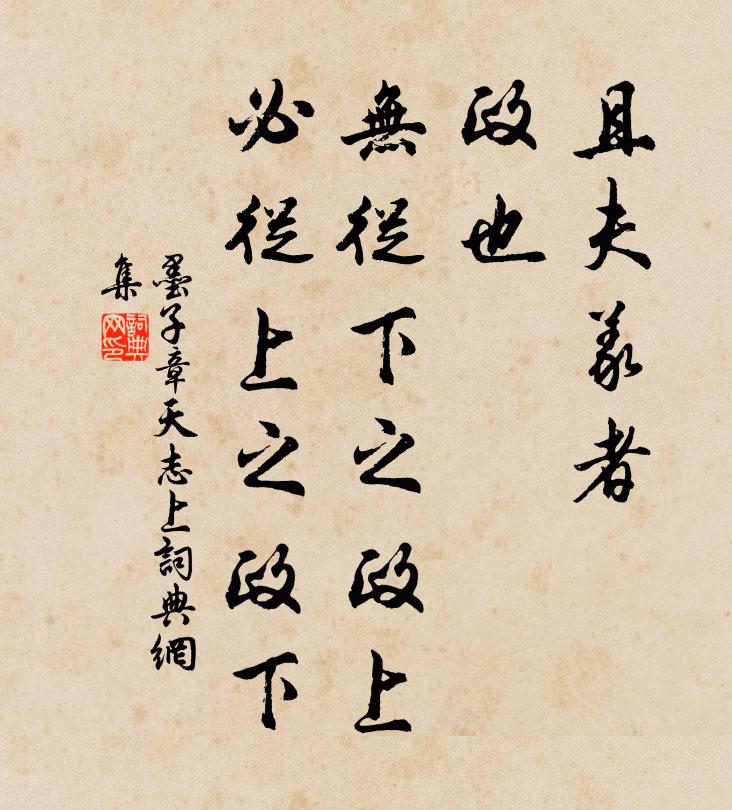 且夫義者
政也
無從下之政上
必從上之政下
墨子章天志上詞典網
集
詞典
网印